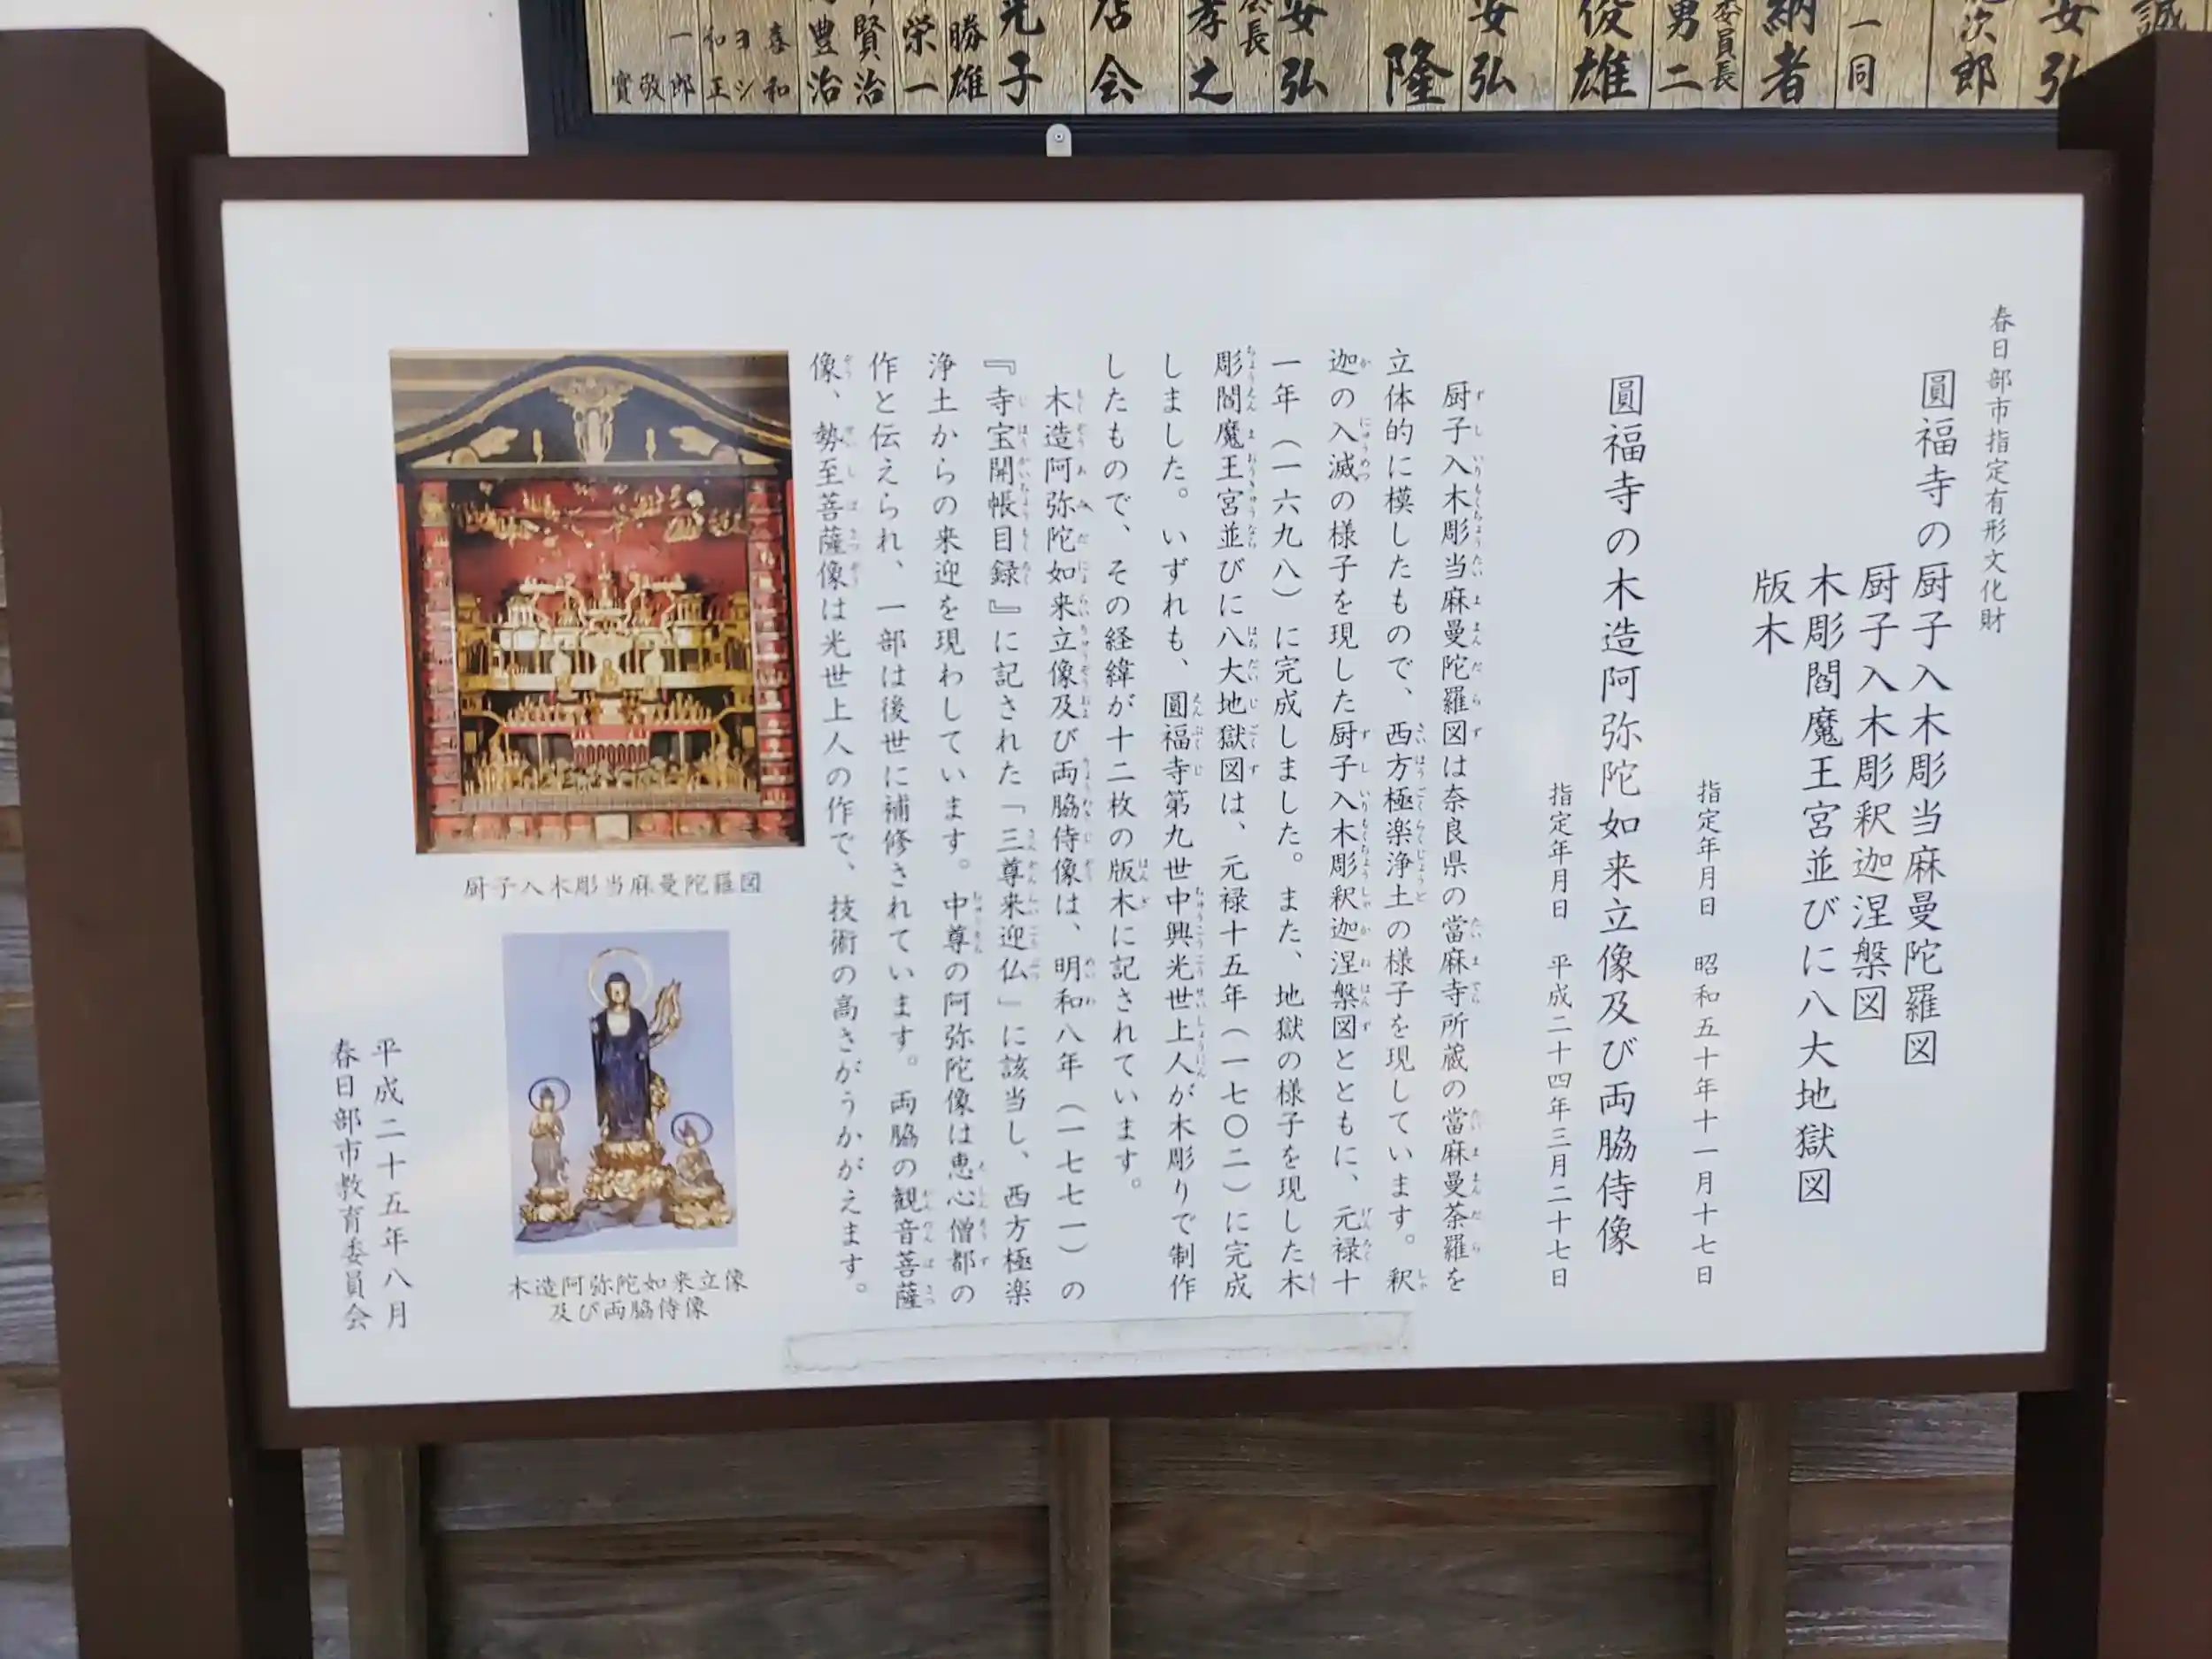 春日部市指定有形文化財
圓福寺の厨子入木彫当麻曼陀羅図
厨子入木彫釈迦涅槃図
木彫閻魔王宮並びに八大地獄図
版木
指定年月日　昭和五十年十一月十七日
圓福寺の木造阿弥陀如来立像及び両脇侍像
指定年月日　平成二十四年三月二十七日
厨子入木彫当麻曼陀羅図は奈良県の當麻寺所蔵の當麻曼荼羅を
立体的に模したもので、西方極楽浄土の様子を現しています。釈
迦の入滅の様子を現した厨子入木彫釈迦涅槃図とともに、元禄十
一年（一六九八）に完成しました。また、地獄の様子を現した木
彫閻魔王宮並びに八大地獄図は、元禄十五年（一七〇二）に完成
しました。いずれも、圓福寺第九世中興光世上人が木彫りで制作
したもので、その経緯が十二枚の版木に記されています。
木造阿弥陀如来立像及び両脇侍像は、明和八年（一七七一）の
『寺宝開帳目録』に記された「三尊来迎仏」に該当し、西方極楽
浄土からの来迎を現わしています。中尊の阿弥陀像は恵心僧都の
作と伝えられ、一部は後世に補修されています。両脇の観音菩薩
像、勢至菩薩像は光世上人の作で、技術の高さがうかがえます。
厨子入木彫当麻曼陀羅図
木造阿弥陀如来立像
及び両脇侍像
平成二十五年八月
春日部市教育委員会
誠
安弘
次郎
一同
納者
委員長
男二
俊雄
安弘
隆
安弘
会長
孝之
店会
光子
勝雄
栄一
賢治
豊治
喜和
ヨシ
和正
一郎
敬
實